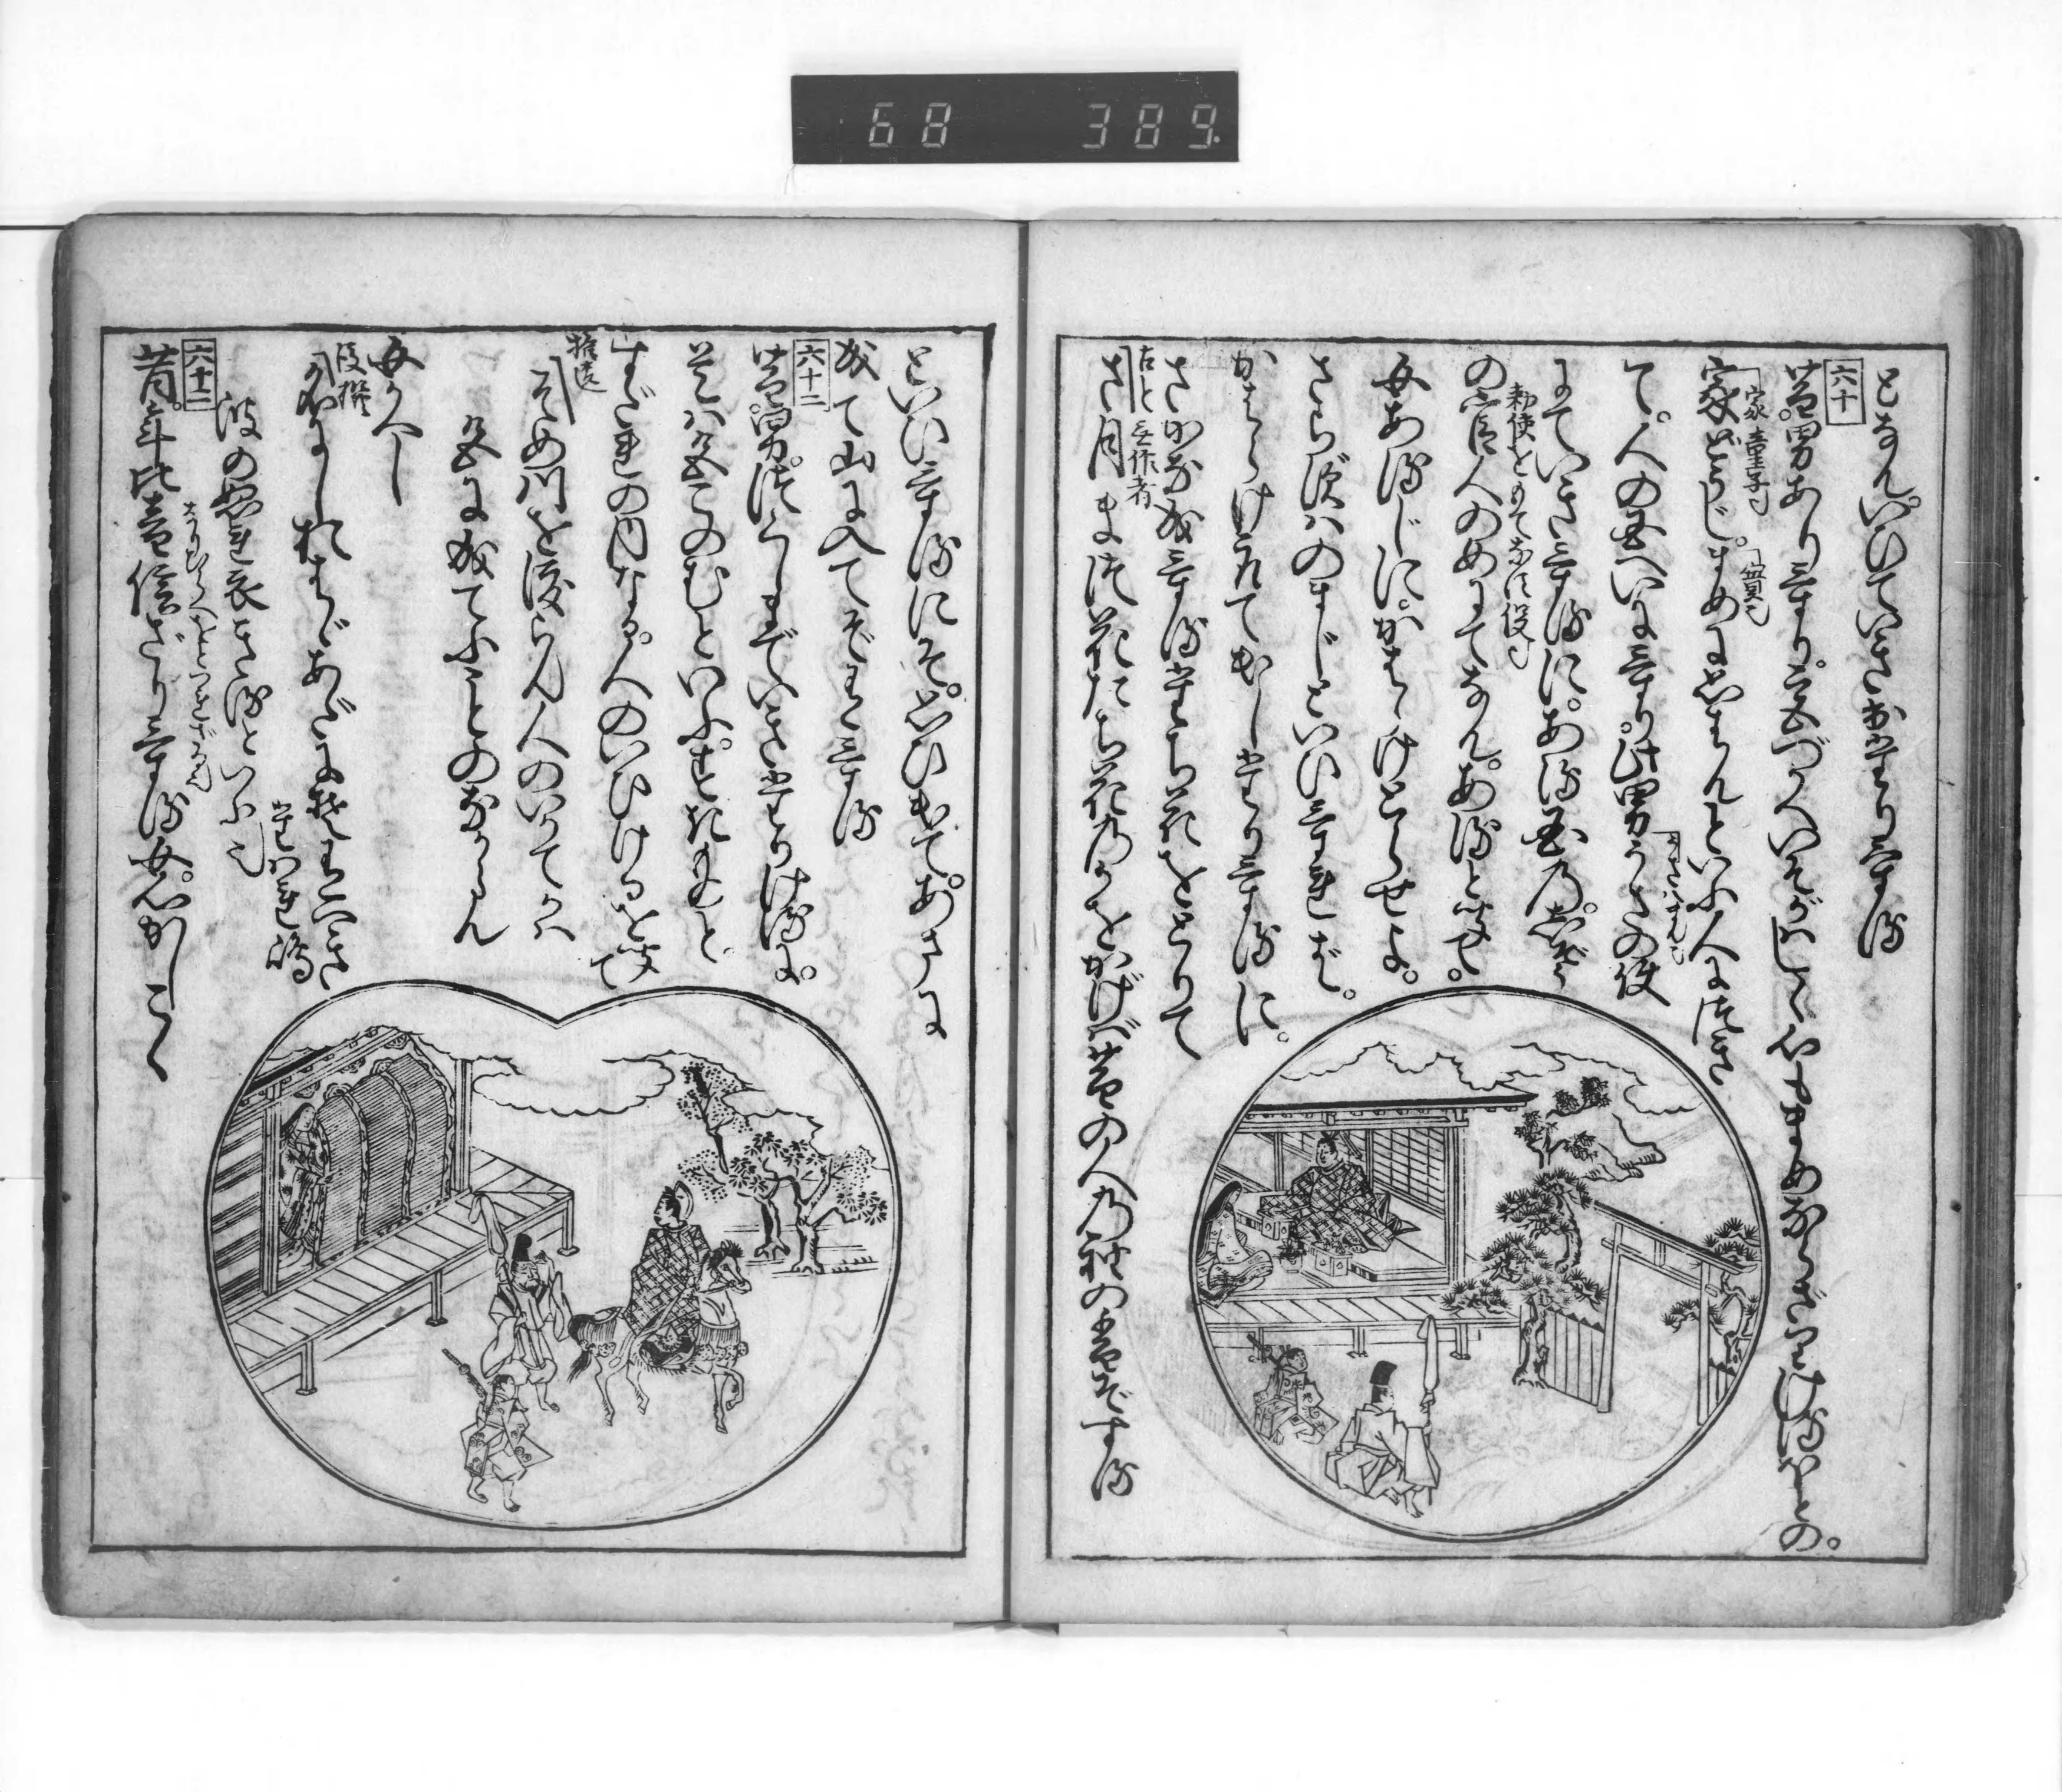 68 389.
となん。いひていき出たりける
六十
昔。男ありけり。宮づかへいそがしく心もまめならざりけるほどの。
家童子
家とうじ。まめにおもはんといふ人につき
實也
て。人の国へいにけり。此男うさの使
にていきけるに。ある国乃。しぞう
勅使をもてなす役也
の官人のめにてなん。あると聞て。
女あるじに。かはらけとらせよ。
さらずはのまじといひければ。
かはらけとりて出したりけるに。
さかな成けるたち花をとりて
古今 無作者
さ月まつ花たち花乃かをかげば昔の人乃袖の香ぞする
といひけるにぞ。思ひ出て。あまに
成て山に入てぞありける
六十一
昔。男。つくしまでいきたりけるに。
是は色このむといふすき物と
すだれの内なる。人のいひけるを聞て
拾遺
そめ川を渡らん人のいかでかは
色に成てふことのなからん
女かへし
後撰
名にしおはゞあだにぞあるべき
たはれ嶋
波のぬれ衣きるといふ也
六十二
昔。年比音信ざりける女。心かしこく